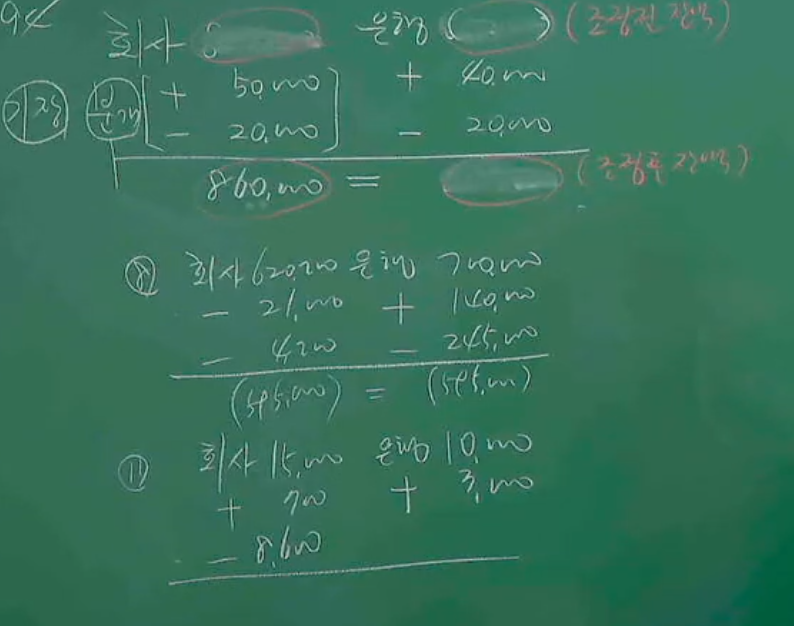 94
회사 ( ) 은행 ( ) (조정전 잔액)
기장 분개 + 50,000 + 40,000
- 20,000 - 20,000
860,000 = (조정후 잔액)
⑧ 회사 620,200 은행 700,000
- 21,000 + 140,000
- 4,200 - 245,000
(595,000) = (595,000)
⑪ 회사 15,000 은행 10,000
+ 700 + 3,000
- 8,600